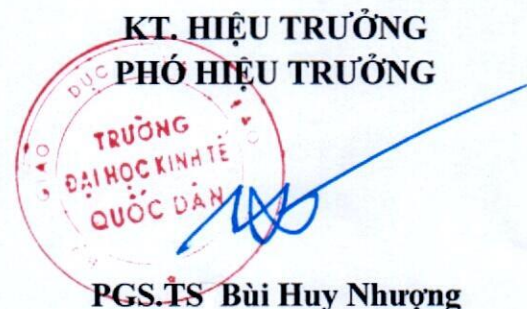 KT. HIỆU TRƯỞNG
PHÓ HIỆU TRƯỞNG
GIÁO DỤC
TRƯỜNG
ĐẠI HỌC KINH TẾ
QUỐC DÂN
PGS.TS Bùi Huy Nhượng